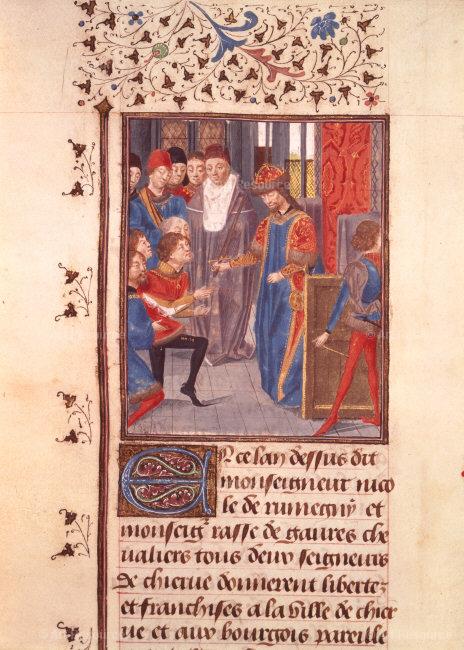 En ce lan dessus dit
monseigneur nico
le de rumegny et
monseigr rasse de gaures che
ualiers tous deux seigneurs
de chierue donnerent libertez
et franchises a la ville de chier
ue et aux bourgois pareille
Resource